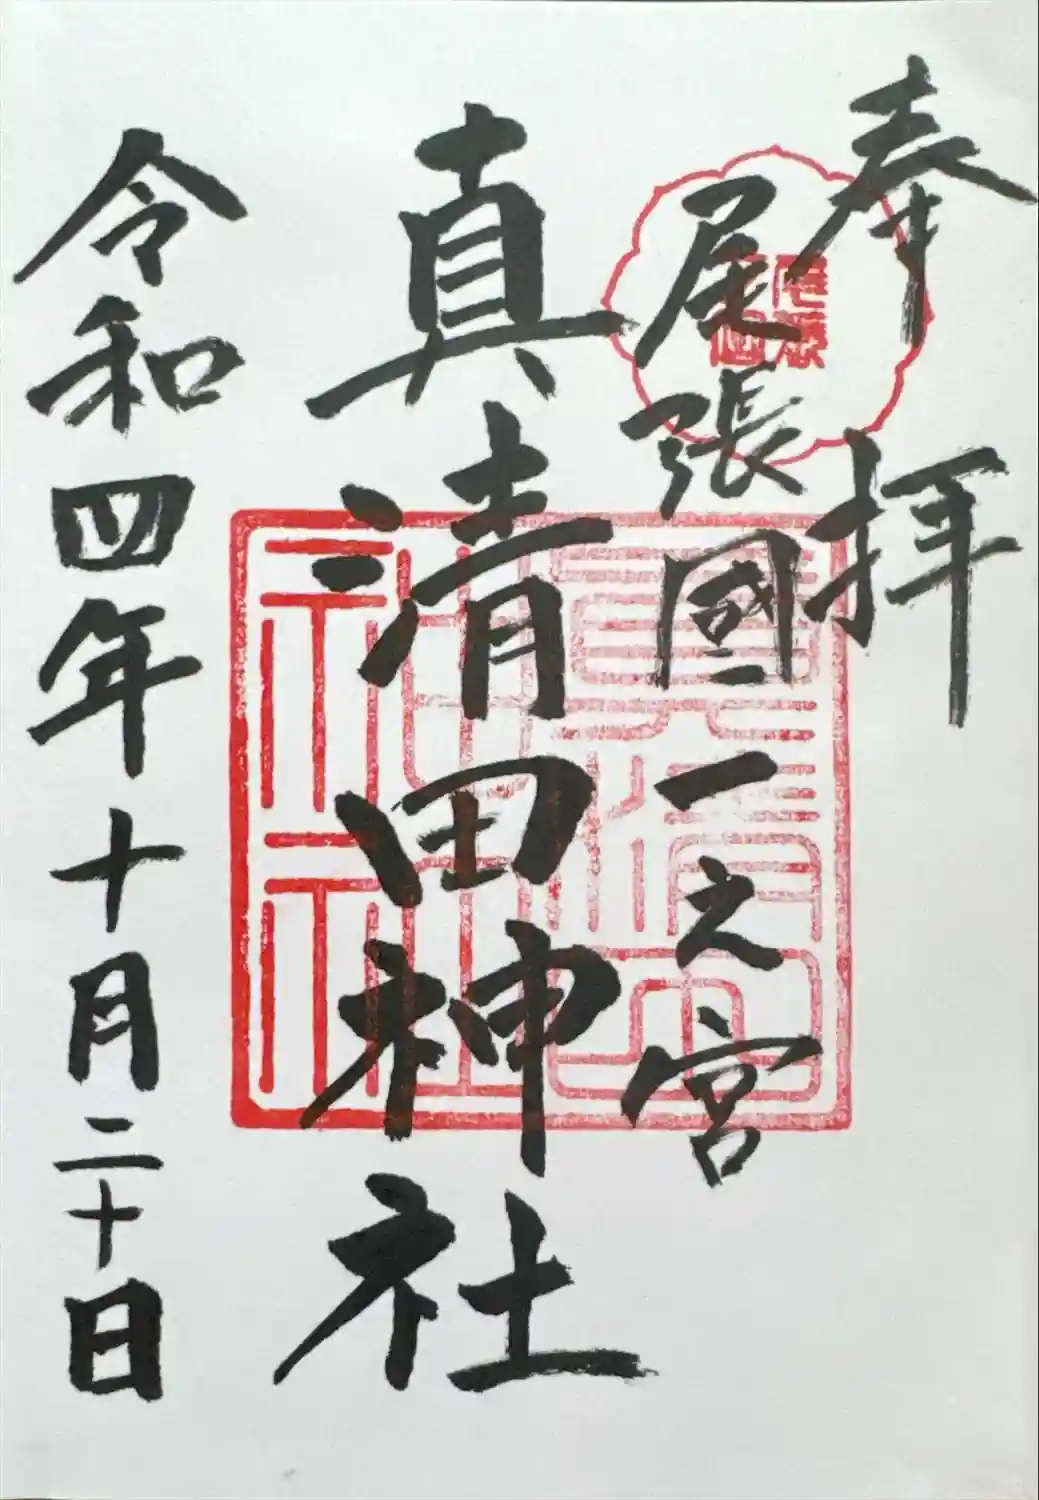 奉拝
尾張國一之宮
真清田神社
令和四年十月二十日
真清田神社